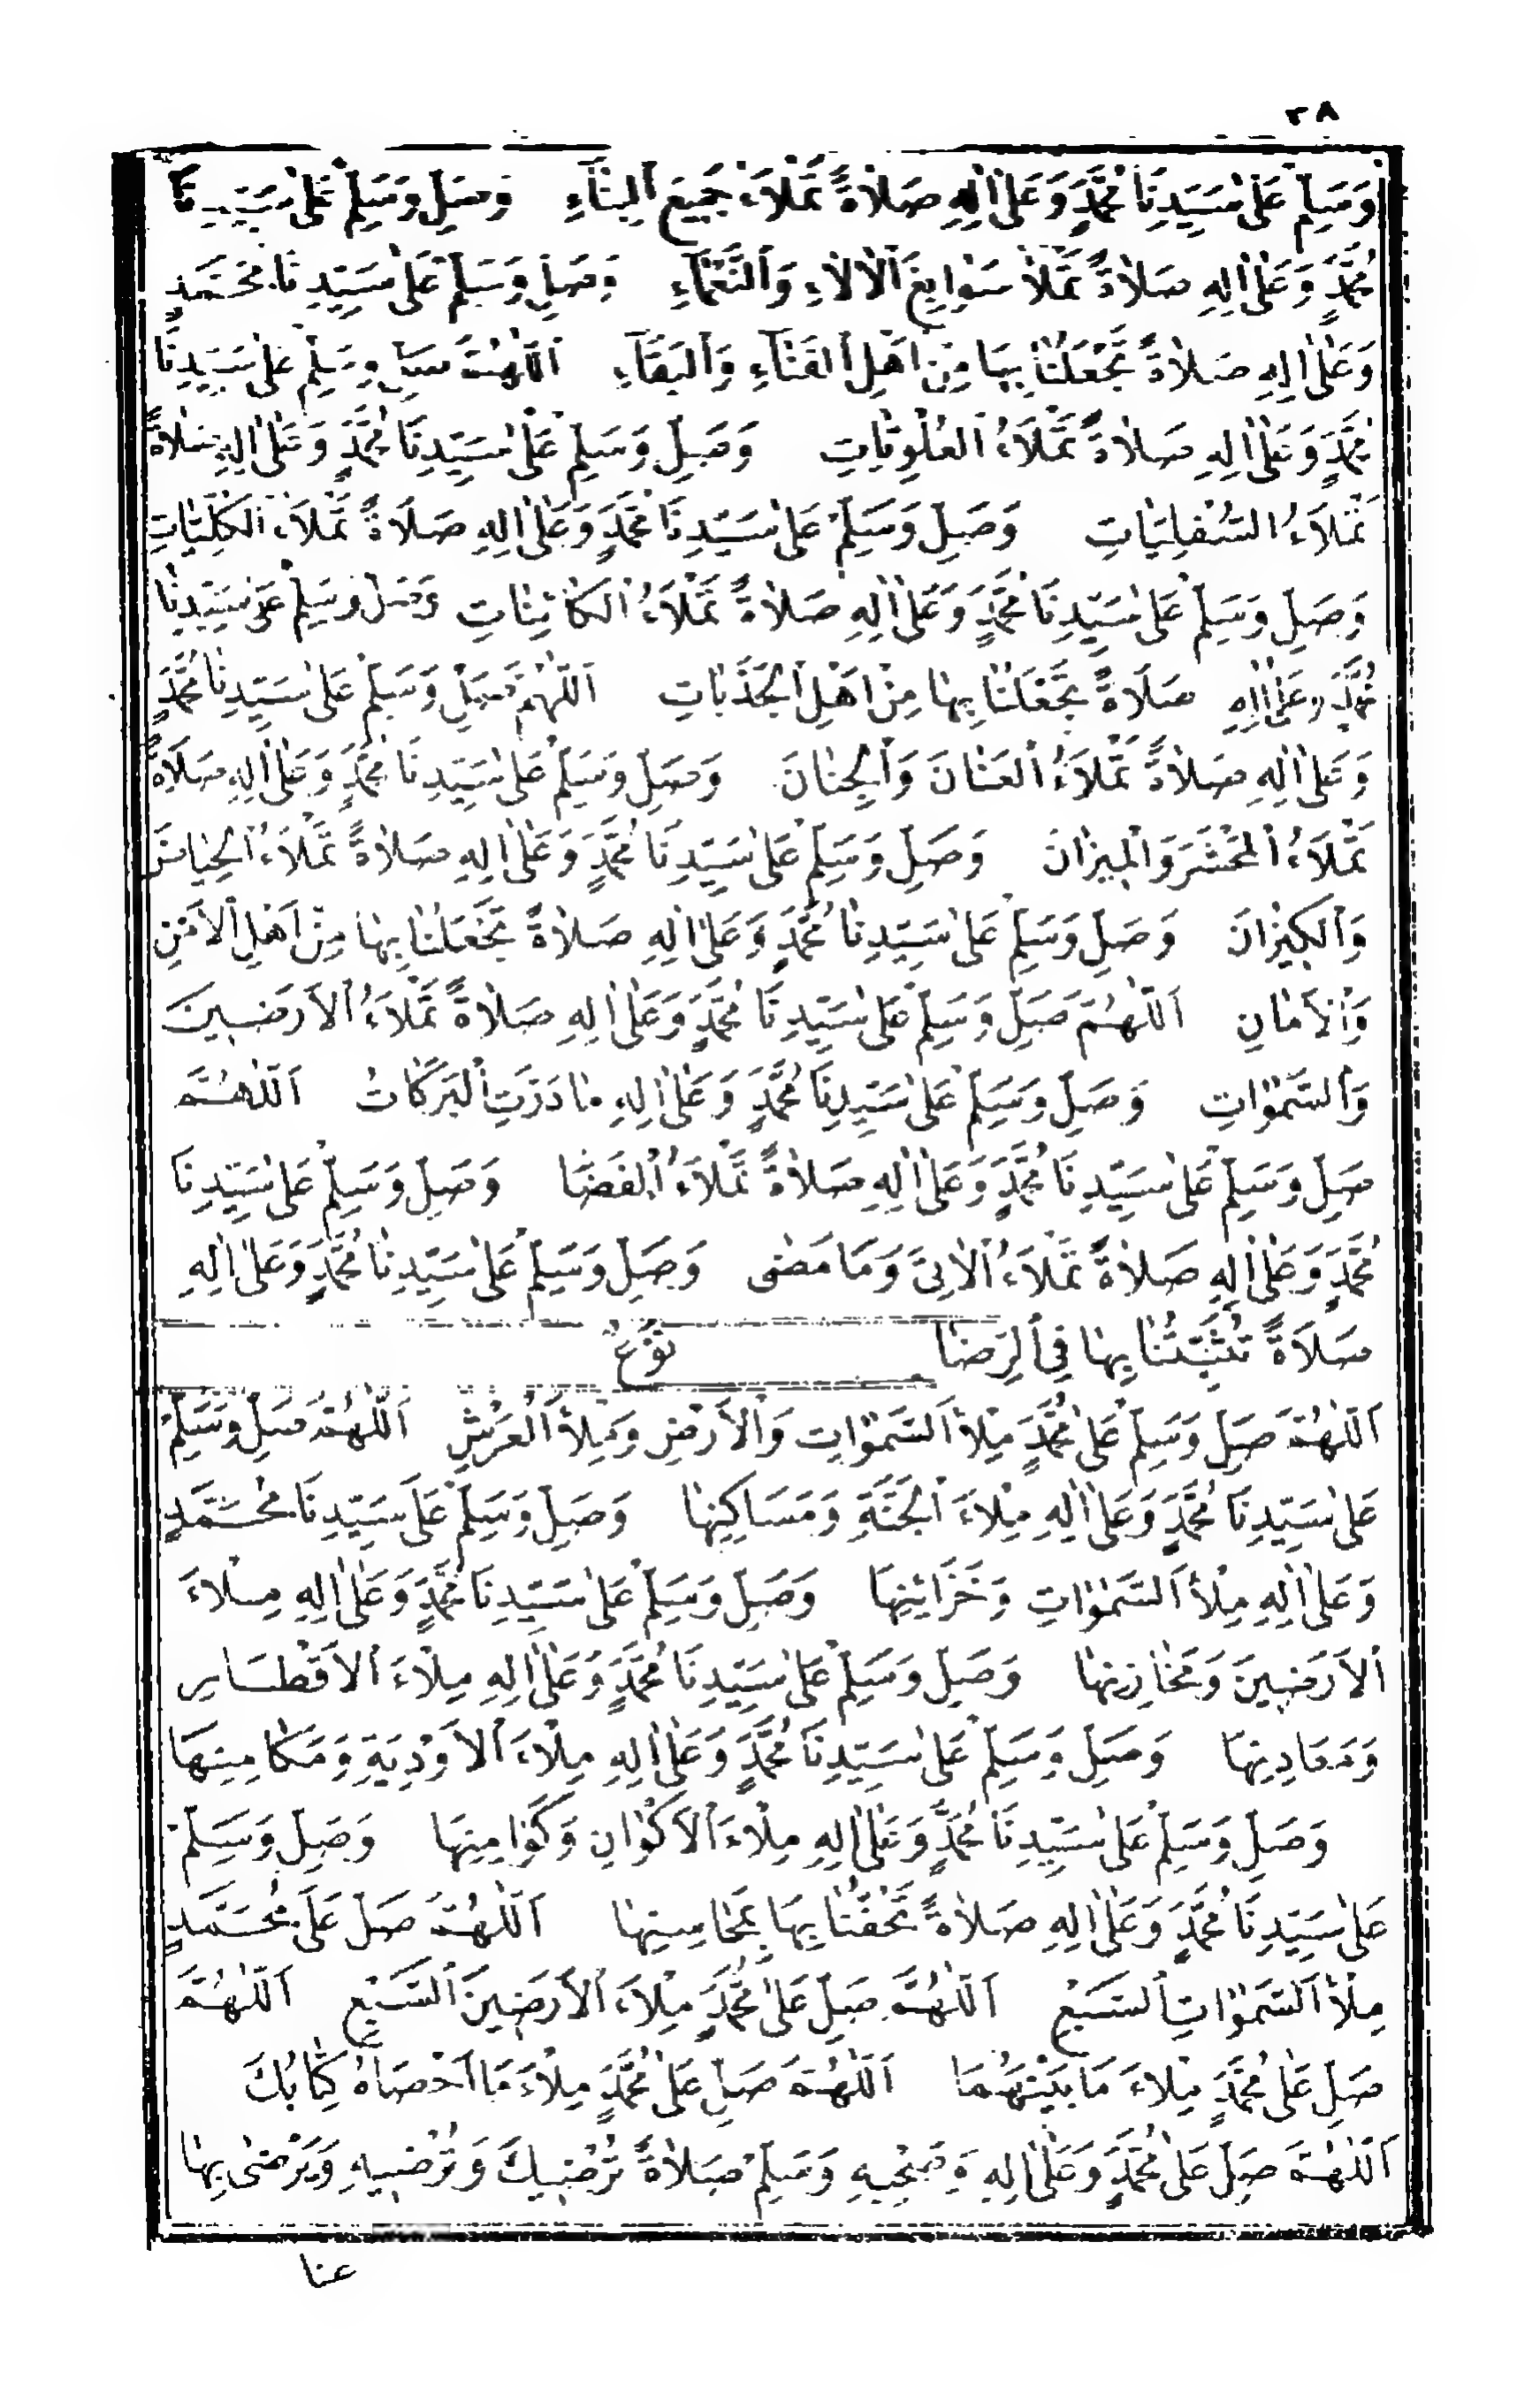 ٣٨
وَسَلِّمْ عَلٰى سَيِّدِنَا مُحَمَّدٍ وَعَلٰى اٰلِهِ صَلَاةً تَمْلَاَءُ جَمِيعَ الْبِنَاءِ وَصَلِّ وَسَلِّمْ عَلٰى سَيِّدِنَا
مُحَمَّدٍ وَعَلٰى اٰلِهِ صَلَاةً تَمْلَأُ سَوَابِغَ اَلْاٰلَاءِ وَالنَّعْمَاءِ وَصَلِّ وَسَلِّمْ عَلٰى سَيِّدِنَا مُحَمَّدٍ
وَعَلٰى اٰلِهِ صَلَاةً تَجْعَلُنَا بِهَا مِنْ اَهْلِ الْفَنَاءِ وَالْبَقَاءِ اَللّٰهُمَّ صَلِّ وَسَلِّمْ عَلٰى سَيِّدِنَا
مُحَمَّدٍ وَعَلٰى اٰلِهِ صَلَاةً تَمْلَاَءُ الْعُلْوِيَّاتِ وَصَلِّ وَسَلِّمْ عَلٰى سَيِّدِنَا مُحَمَّدٍ وَعَلٰى اٰلِهِ صَلَاةً
تَمْلَاَءُ السُّفْلِيَّاتِ وَصَلِّ وَسَلِّمْ عَلٰى سَيِّدِنَا مُحَمَّدٍ وَعَلٰى اٰلِهِ صَلَاةً تَمْلَاَءُ الْكُلِّيَّاتِ
وَصَلِّ وَسَلِّمْ عَلٰى سَيِّدِنَا مُحَمَّدٍ وَعَلٰى اٰلِهِ صَلَاةً تَمْلَاَءُ الْكَائِنَاتِ وَصَلِّ وَسَلِّمْ عَلٰى سَيِّدِنَا
مُحَمَّدٍ وَعَلٰى اٰلِهِ صَلَاةً تَجْعَلُنَا بِهَا مِنْ اَهْلِ الْجَذَبَاتِ اَللّٰهُمَّ صَلِّ وَسَلِّمْ عَلٰى سَيِّدِنَا مُحَمَّدٍ
وَعَلٰى اٰلِهِ صَلَاةً تَمْلَاَءُ الْعَنَانَ وَالْجِنَانَ وَصَلِّ وَسَلِّمْ عَلٰى سَيِّدِنَا مُحَمَّدٍ وَعَلٰى اٰلِهِ صَلَاةً
تَمْلَاَءُ الْمَحْشَرَ وَالْمِيزَانَ وَصَلِّ وَسَلِّمْ عَلٰى سَيِّدِنَا مُحَمَّدٍ وَعَلٰى اٰلِهِ صَلَاةً تَمْلَاَءُ الْحِيَاضَ
وَالْكِيزَانَ وَصَلِّ وَسَلِّمْ عَلٰى سَيِّدِنَا مُحَمَّدٍ وَعَلٰى اٰلِهِ صَلَاةً تَجْعَلُنَا بِهَا مِنْ اَهْلِ الْاَمْنِ
وَالْاَمَانِ اَللّٰهُمَّ صَلِّ وَسَلِّمْ عَلٰى سَيِّدِنَا مُحَمَّدٍ وَعَلٰى اٰلِهِ صَلَاةً تَمْلَاَءُ الْاَرَضِينَ
وَالسَّمٰوَاتِ وَصَلِّ وَسَلِّمْ عَلٰى سَيِّدِنَا مُحَمَّدٍ وَعَلٰى اٰلِهِ مَا دَرَّتِ الْبَرَكَاتُ اَللّٰهُمَّ
صَلِّ وَسَلِّمْ عَلٰى سَيِّدِنَا مُحَمَّدٍ وَعَلٰى اٰلِهِ صَلَاةً تَمْلَاَءُ الْفَضَا وَصَلِّ وَسَلِّمْ عَلٰى سَيِّدِنَا
مُحَمَّدٍ وَعَلٰى اٰلِهِ صَلَاةً تَمْلَاَءُ الْاٰتِيَ وَمَا مَضٰى وَصَلِّ وَسَلِّمْ عَلٰى سَيِّدِنَا مُحَمَّدٍ وَعَلٰى اٰلِهِ
صَلَاةً تُثَبِّتُنَا بِهَا فِي الرِّضَا نَوْعٌ
اَللّٰهُمَّ صَلِّ وَسَلِّمْ عَلٰى مُحَمَّدٍ مِلْأَ السَّمٰوَاتِ وَالْاَرْضِ وَمِلْأَ الْعَرْشِ اَللّٰهُمَّ صَلِّ وَسَلِّمْ
عَلٰى سَيِّدِنَا مُحَمَّدٍ وَعَلٰى اٰلِهِ مِلْاءَ الْجَنَّةِ وَمَسَاكِنِهَا وَصَلِّ وَسَلِّمْ عَلٰى سَيِّدِنَا مُحَمَّدٍ
وَعَلٰى اٰلِهِ مِلْأَ السَّمٰوَاتِ وَخَزَائِنِهَا وَصَلِّ وَسَلِّمْ عَلٰى سَيِّدِنَا مُحَمَّدٍ وَعَلٰى اٰلِهِ مِلْاءَ
الْاَرَضِينَ وَمَخَازِنِهَا وَصَلِّ وَسَلِّمْ عَلٰى سَيِّدِنَا مُحَمَّدٍ وَعَلٰى اٰلِهِ مِلْاءَ الْاَقْطَارِ
وَمَعَادِنِهَا وَصَلِّ وَسَلِّمْ عَلٰى سَيِّدِنَا مُحَمَّدٍ وَعَلٰى اٰلِهِ مِلْاءَ الْاَوْدِيَةِ وَمَكَامِنِهَا
وَصَلِّ وَسَلِّمْ عَلٰى سَيِّدِنَا مُحَمَّدٍ وَعَلٰى اٰلِهِ مِلْاءَ الْاَكْوَانِ وَكَوَامِنِهَا وَصَلِّ وَسَلِّمْ
عَلٰى سَيِّدِنَا مُحَمَّدٍ وَعَلٰى اٰلِهِ صَلَاةً تَحُفُّنَا بِهَا بِمَحَاسِنِهَا اَللّٰهُمَّ صَلِّ عَلٰى مُحَمَّدٍ
مِلْأَ السَّمٰوَاتِ السَّبْعِ اَللّٰهُمَّ صَلِّ عَلٰى مُحَمَّدٍ مِلْاءَ الْاَرَضِينَ السَّبْعِ اَللّٰهُمَّ
صَلِّ عَلٰى مُحَمَّدٍ مِلْاءَ مَا بَيْنَهُمَا اَللّٰهُمَّ صَلِّ عَلٰى مُحَمَّدٍ مِلْاءَ مَا اَحْصَاهُ كِتَابُكَ
اَللّٰهُمَّ صَلِّ عَلٰى مُحَمَّدٍ وَعَلٰى اٰلِهِ وَصَحْبِهِ وَسَلِّمْ صَلَاةً تُرْضِيكَ وَتُرْضِيهِ وَيَرْضٰى بِهَا
عنا